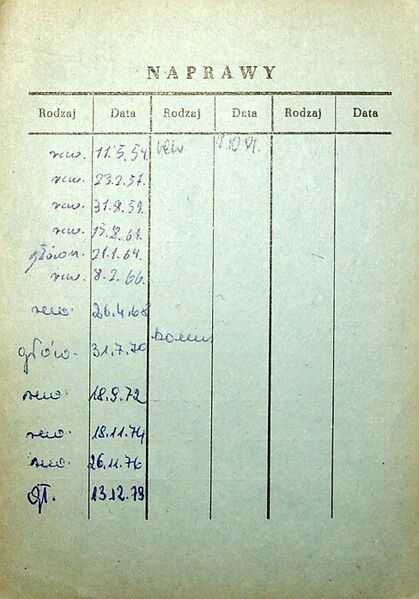 NAPRAWY
Rodzaj Data Rodzaj Data Rodzaj Data
rew. 11.5.54
rew. 23.2.57.
rew. 31.8.59.
rew. 15.8.61.
główn. 21.1.64.
rew. 8.2.66.
rew. 26.4.68
główn. 31.7.70
rew. 18.9.72
rew. 18.11.74
rew. 26.11.76
gł. 13.12.79